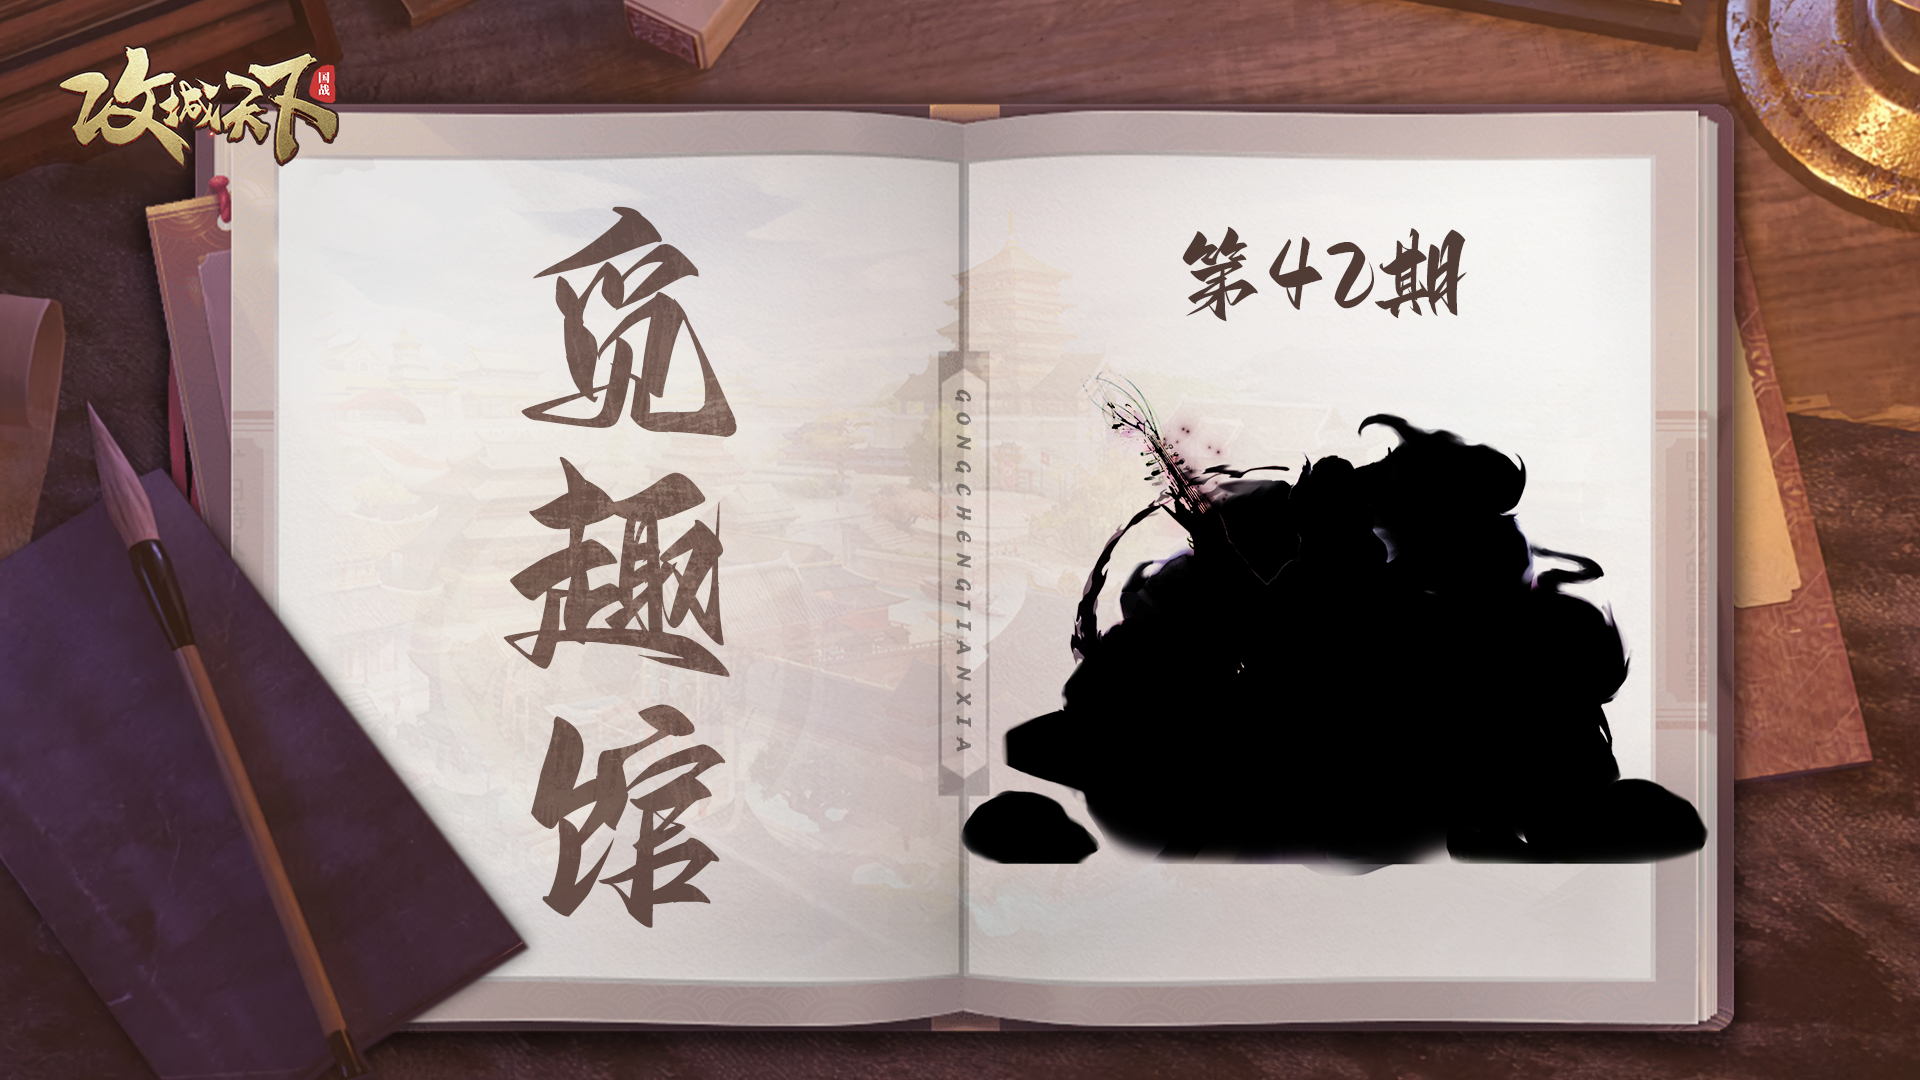 攻城天下
国战
觅趣馆
第42期
GONGCHENGTIANXIA